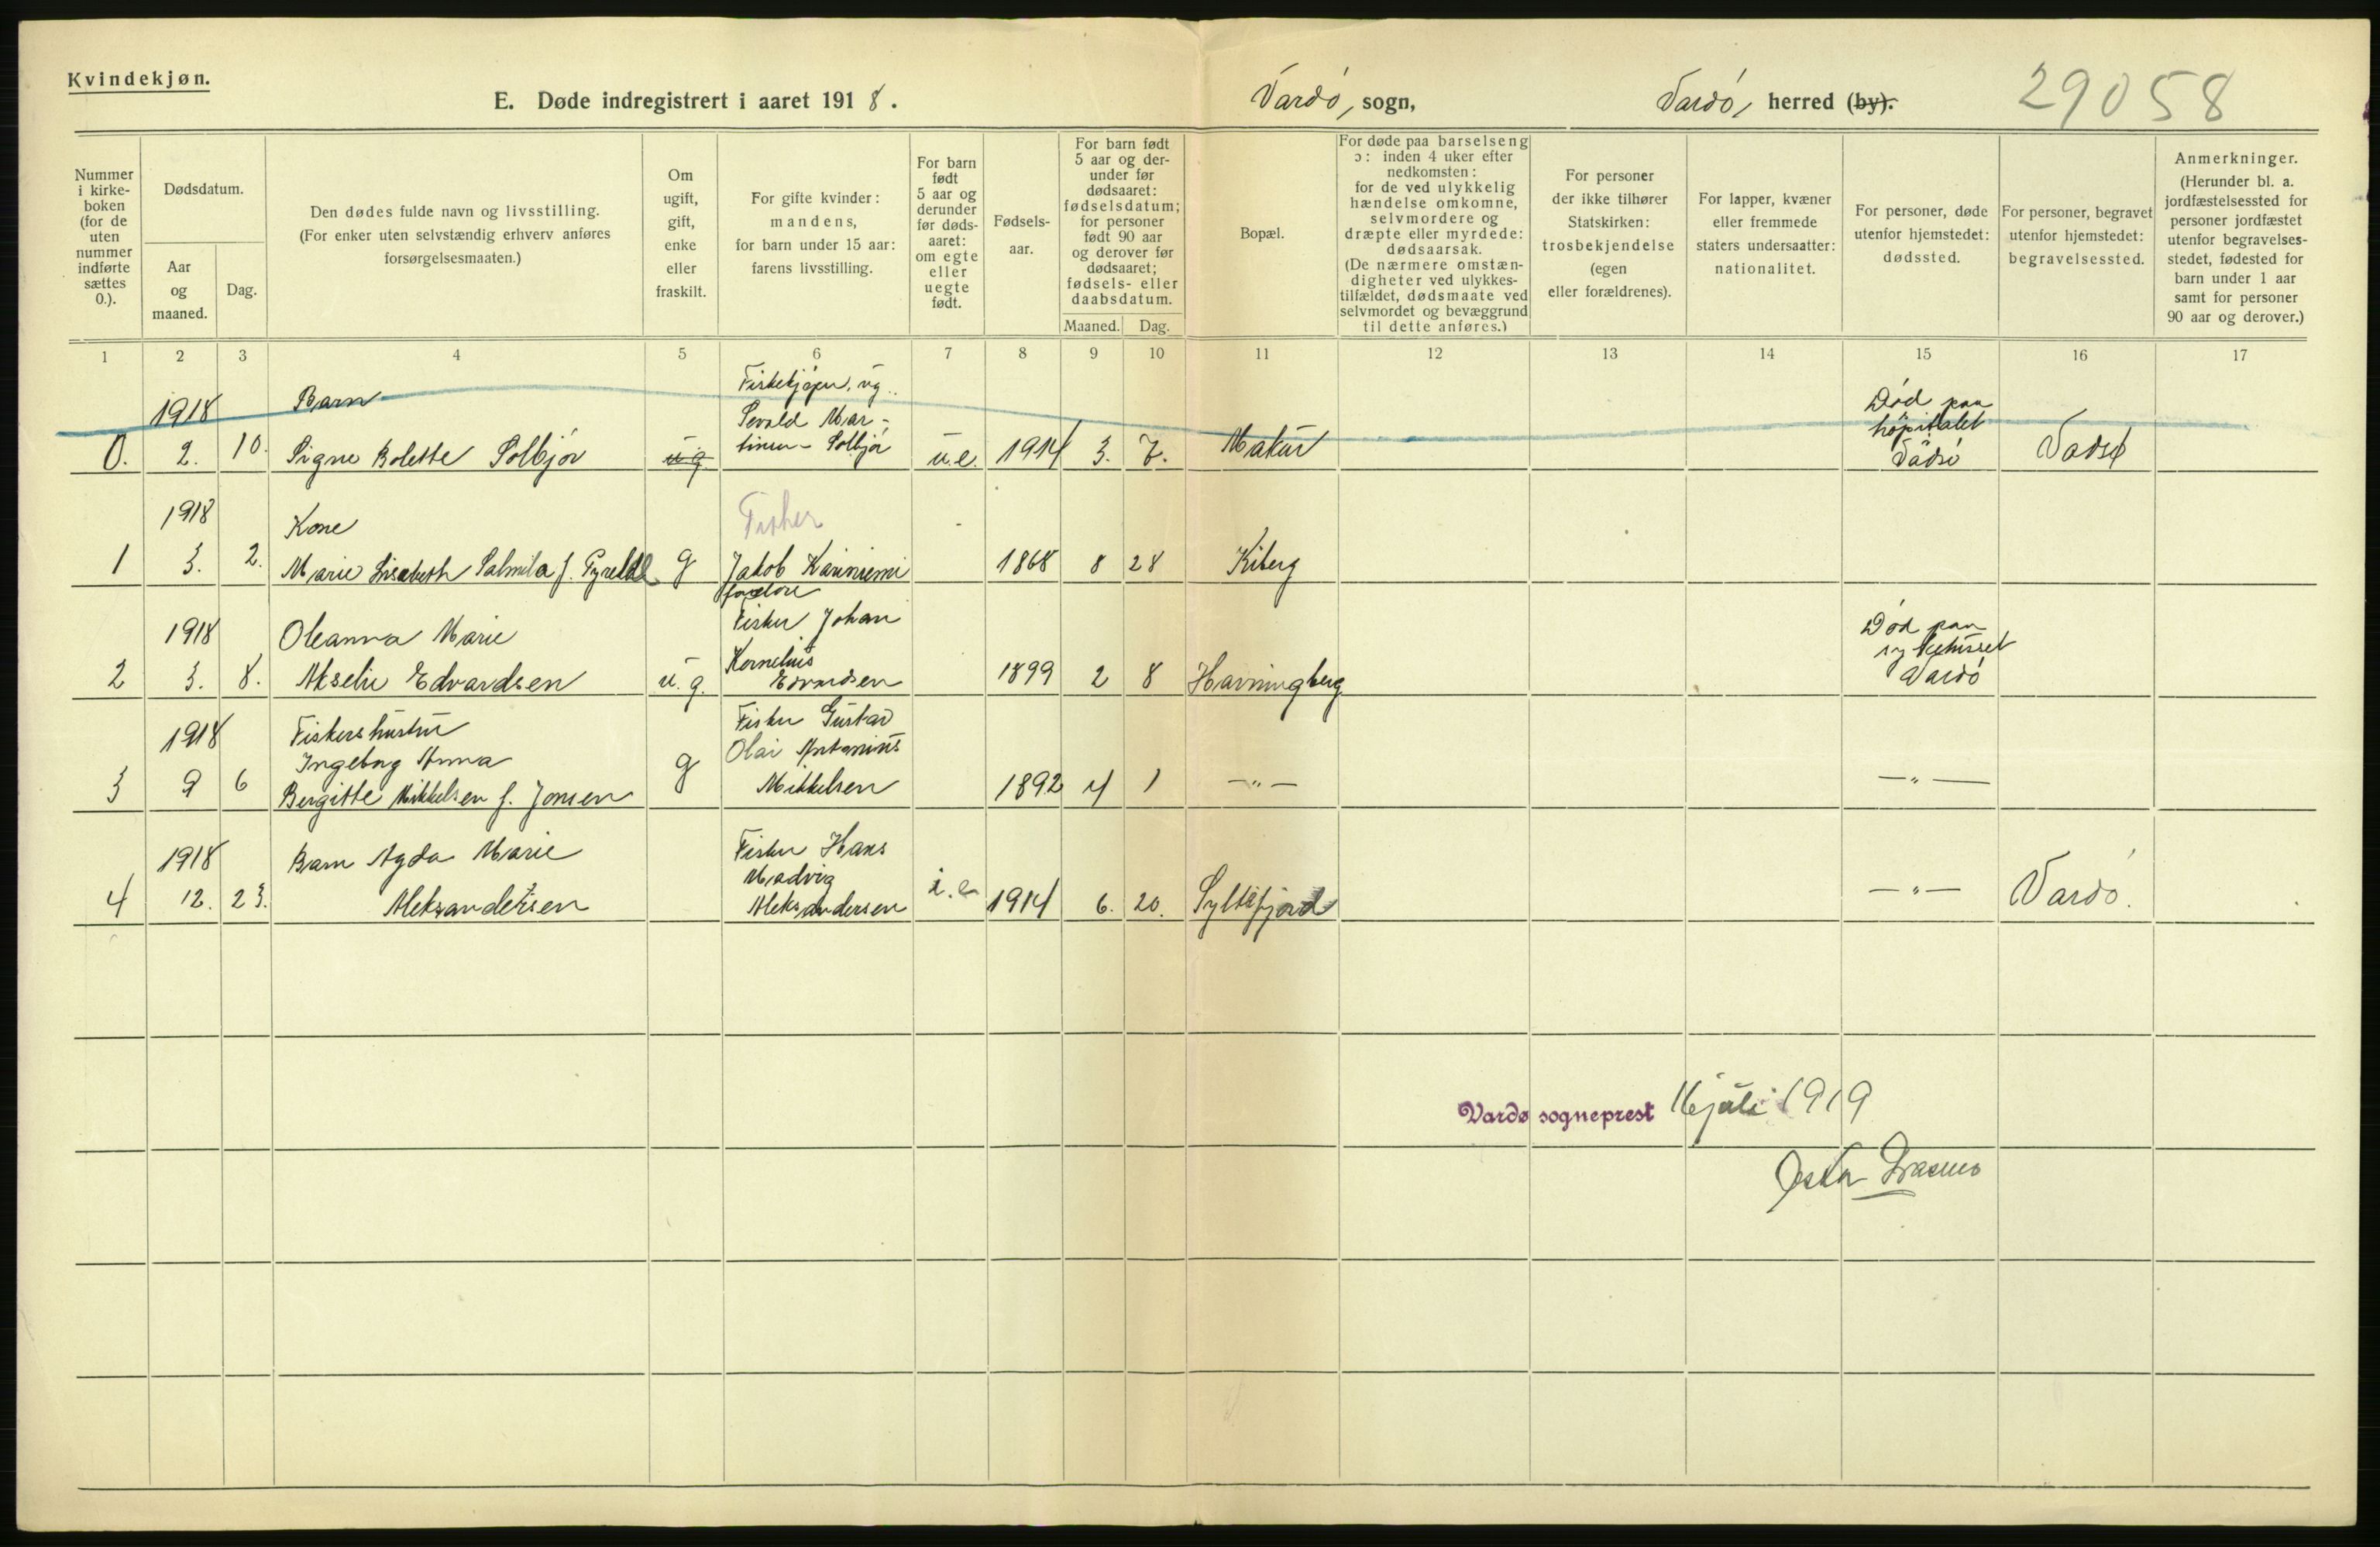 Kvindekjøn.
E. Døde indregistrert i aaret 1918.
Vardø, sogn,
Vardø, herred (by).
29058
Nummer i kirke-boken (for de uten nummer indførte sættes 0.).
Dødsdatum.
Aar og maaned.
Dag.
Den dødes fulde navn og livsstilling.
(For enker uten selvstændig erhverv anføres
forsørgelsesmaaten.)
Om ugift, gift, enke eller fraskilt.
For gifte kvinder:
mandens,
for barn under 15 aar:
farens livsstilling.
For barn født 5 aar og derunder før døds-aaret: om egte eller uegte født.
Fødsels-aar.
For barn født 5 aar og der-under før dødsaaret: fødselsdatum; for personer født 90 aar og derover før dødsaaret; fødsels- eller daabsdatum.
Maaned.
Dag.
Bopæl.
For døde paa barselseng
ɔ: inden 4 uker efter
nedkomsten:
for de ved ulykkelig
hændelse omkomne,
selvmordere og
dræpte eller myrdede:
dødsaarsak.
(De nærmere omstæn-
digheter ved ulykkes-
tilfældet, dødsmaate ved
selvmordet og bevæggrund
til dette anføres.)
For personer
der ikke tilhører
Statskirken:
trosbekjendelse
(egen
eller forældrenes).
For lapper, kvæner
eller fremmede
staters undersaatter:
nationalitet.
For personer, døde
utenfor hjemstedet:
dødssted.
For personer, begravet
utenfor hjemstedet:
begravelsessted.
Anmerkninger.
(Herunder bl. a.
jordfæstelsessted for
personer jordfæstet
utenfor begravelses-
stedet, fødested for
barn under 1 aar
samt for personer
90 aar og derover.)
1 2 3 4 5 6 7 8 9 10 11 12 13 14 15 16 17
1918 Barn Død paa
Sevald Mar- hospitalet
0. 2. 10. Signe Bolette Solbjør ug tinus Solbjør u.e. 1914 3. 7. Makur Vadsø Vadsø
1918 Kone Fisker
1 3. 2. Marie Lisabeth Salmila f. g Jakob 1868 8 28 Kiberg
1918 Oleanna Marie Fisker Johan Død paa
Kornelius sykehuset
2 3. 8. Akselie Edvardsen u.g. Edvardsen 1899 2 8 Havningberg Vardø
1918 Fiskershustru Fisker Gustav
Ingeborg Anna Olai Antonius
3 9 6 Bergitte Mikkelsen f. Jonsen g Mikkelsen 1892 4 1 —"— —"—
1918 Barn Agda Marie Fisker Hans
Madvig
4 12. 23. Aleksandersen Aleksandersen i.e 1914 6. 20. Syltefjord —"— Vardø.
Vardø sogneprest 16 juli 1919